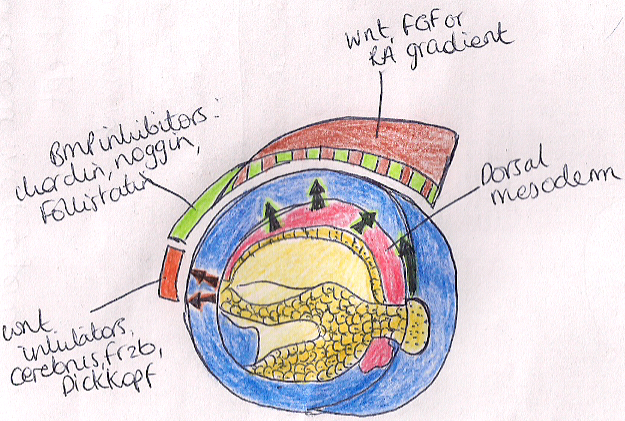 Wnt, FGF or
RA gradient
BMP inhibitors:
chordin, noggin,
Follistatin
Dorsal
mesoderm
wnt
inhibitors,
Cerebrus, Frzb,
Dickkopf